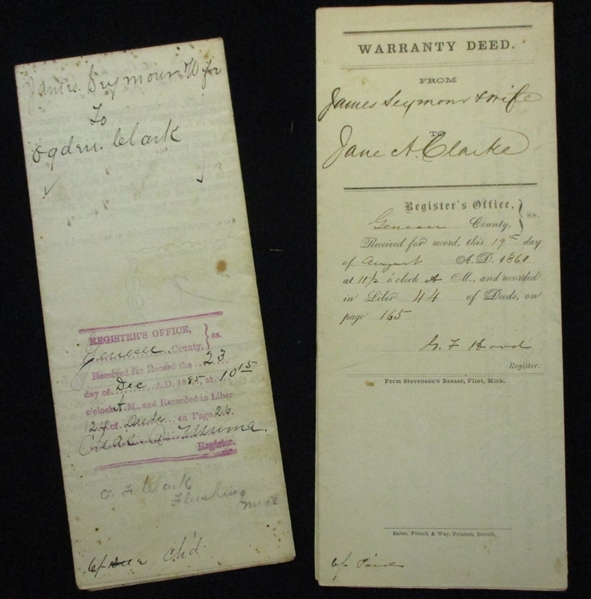 James Seymour & Wife
To
Ogden Clark
REGISTER'S OFFICE,
Genesee County, } ss.
Received for Record the 23
day of Dec A.D. 18 at 10 15
o'clock A M., and Recorded in Liber
124 of Deeds on Page 26
Register.
O. F. Clark
Flushing
Mich
WARRANTY DEED.
FROM
James Seymour & wife
TO
Jane A. Clarke
Register's Office,
Genesee County, } ss.
Received for record, this 19th day
of August A.D. 1861
at 11 1/2 o'clock A M., and recorded
in Liber 44 of Deeds, on
page 165
G. F. Hood
Register.
From Stevenson's Bazaar, Flint, Mich.
Eaton, French & Way, Printers, Detroit.